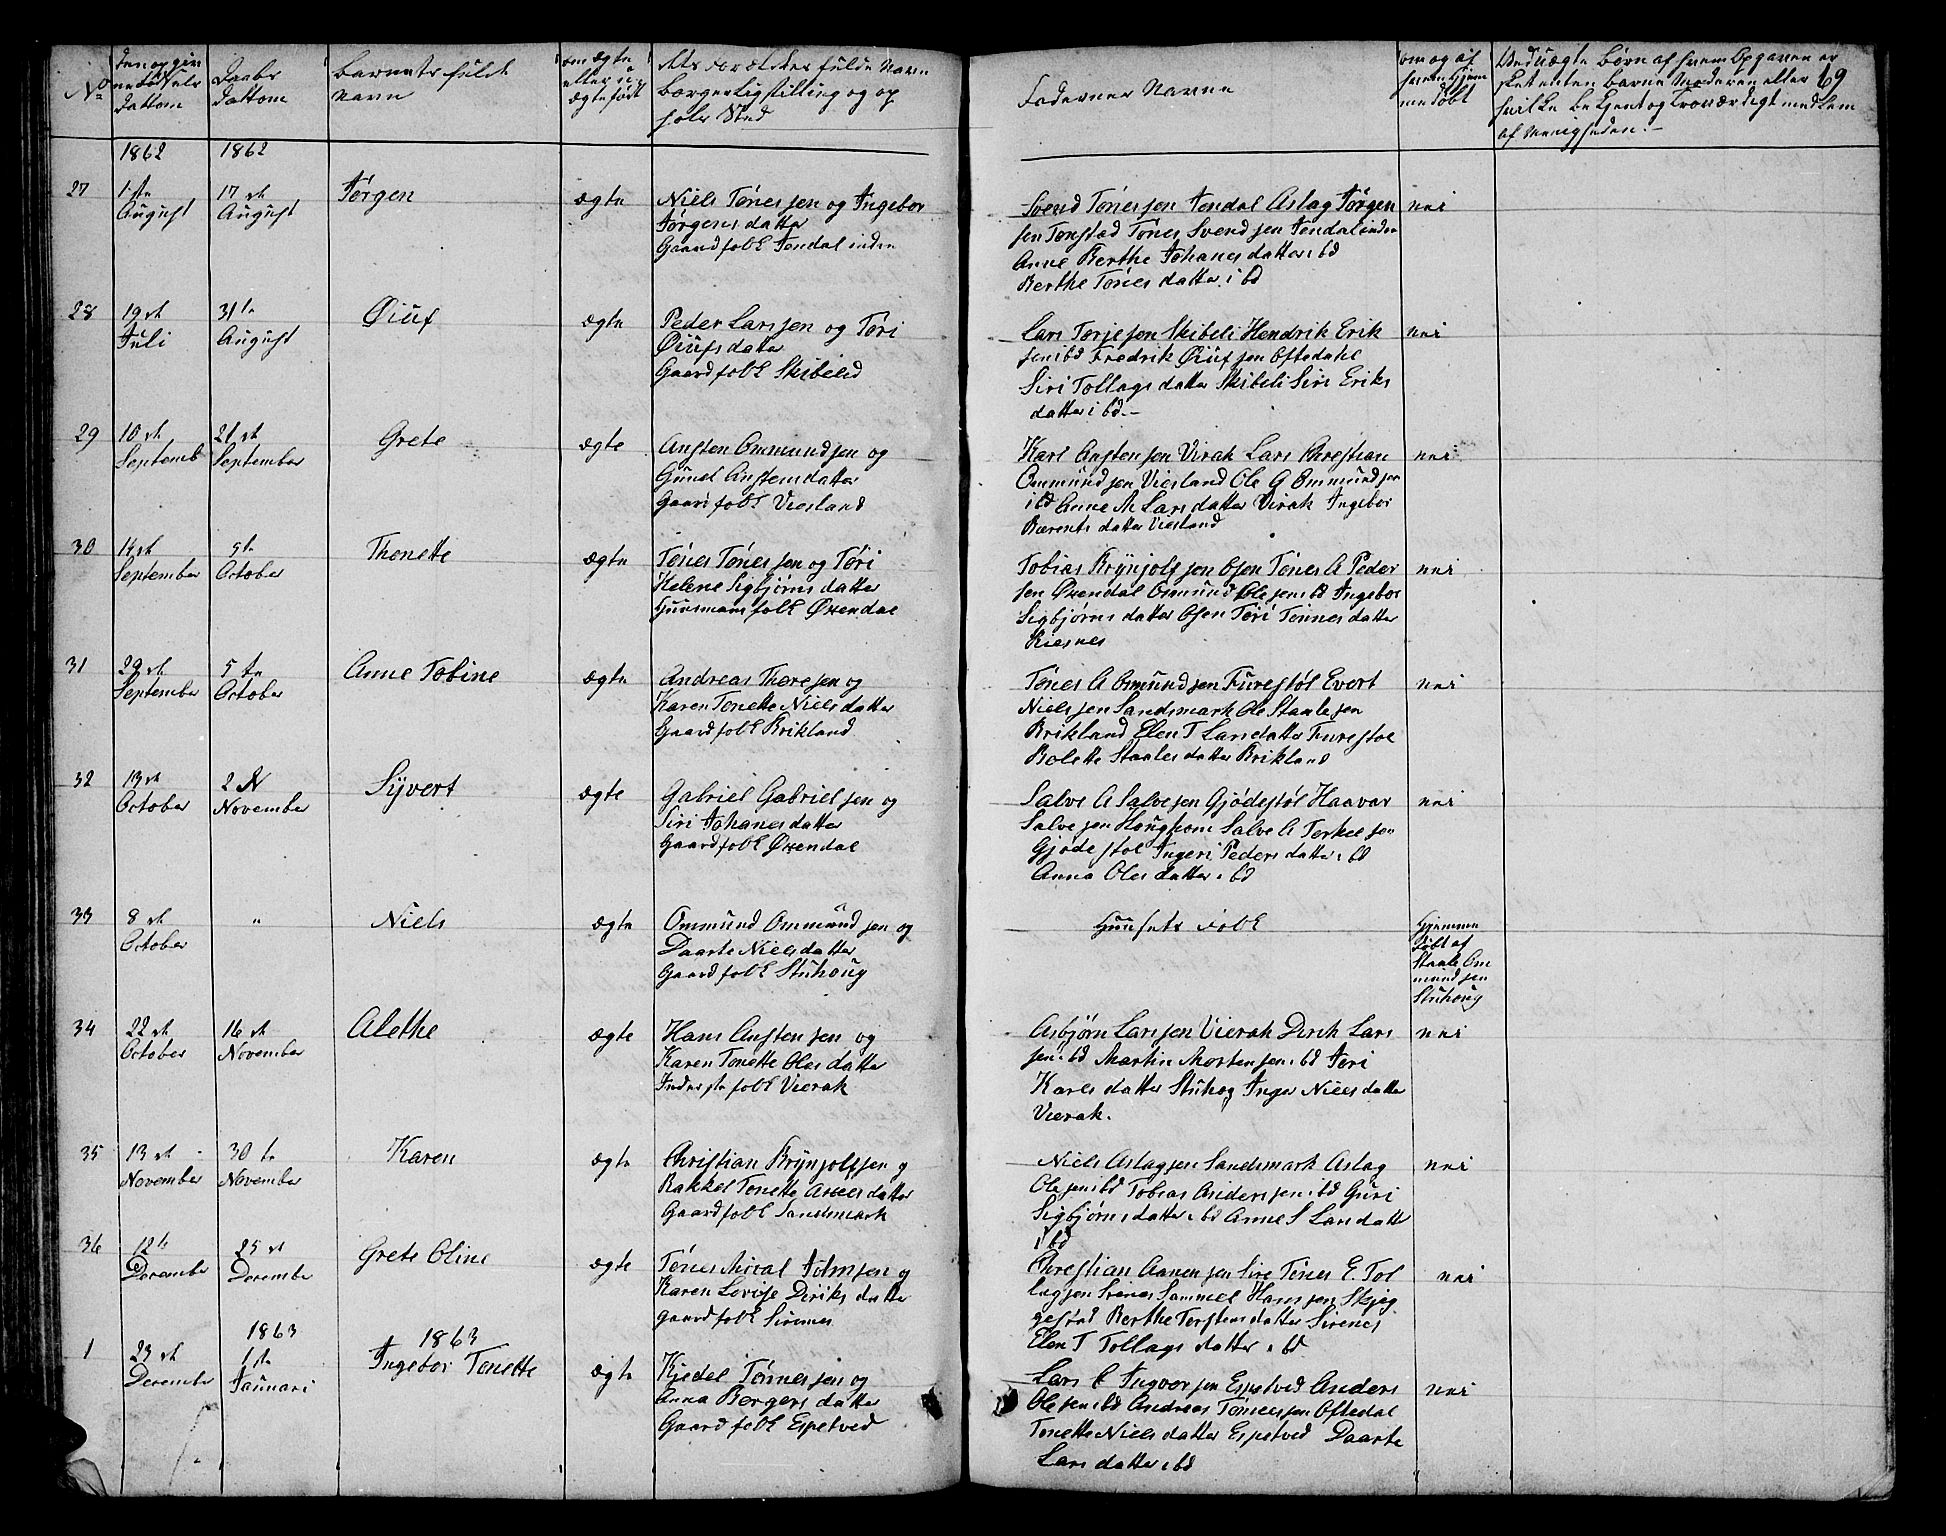 No
den opgivne
Daabs
Dattom
Barnets fulde
Navn
om ægte
eller u-
ægte født
Forældres fulde Navn
Borgerlig stilling og op
holds Sted
Faderner Navne
om og af
hvem hjem
medøbt
Ved uægte Børn af hvem Opgaven er
sket enten Barne Moderen eller
hvilke bekjent og Troværdigt medlem
af Menigheden.-
69
1862 1862
27 1ste August 17de August Jørgen ægte
Niels Tønesen og Ingebor
Jørgensdatter
Gaardfolk Fendal inden
Svend Tønesen Fendal Aslag Jørgen
sen Tonstad Tønes Svendsen Fendal inden
Anne Berthe Johanesdatter ibd
Berthe Tønesdatter ibd
nei
28 19de Juli 31te August Øiuf ægte
Peder Larsen og Tøri
Øiufsdatter
Gaardfolk Skibelid
Lars Torjesen Skibeli Hendrik Erik
sen ibd Fredrik Øiufsen Oftedahl
Siri Tollagsdatter Skibeli Siri Eriks
datter ibd.-
nei
29 10de Septemb 21de September Grete ægte
Ansten Ommundsen og
Gunel Anstensdatter
Gaardfolk Viesland
Karl Anstensen Virak Lars Christian
Ommundsen Viesland Ole G Ommundsen
ibd Anne M Larsdatter Virak Ingebor
Berentsdatter Viesland
nei
30 14de September 5te October Thonette ægte
Tønes Tønesen og Tøri
Helene Sigbjørnsdatter
Huusmansfolk Øxendal
Tobias Brynjolfsen Osen Tønes A Peder
sen Øxendal Osmund Olesen ibd Ingebor
Sigbjørnsdatter Osen Tøri Tønnesdatter
Risnes
nei
31 29de September 5te October Anne Tobine ægte
Andreas Thoresen og
Karen Tonette Nielsdatter
Gaardfolk Brikland
Tønes A Osmundsen Furestøl Evert
Nielsen Sandsmark Ole Staalesen
Brikland Elen T Larsdatter Furestol
Bolette Staalesdatter Brikland
nei
32 13de October 2 November Syvert ægte
Gabriel Gabrielsen og
Siri Johanesdatter
Gaardfolk Øxendal
Salve A Salvesen Gjødestøl Haavar
Salvesen Houghom Salve A Terkelsen
Gjødestøl Ingeri Pedersdatter ibd
Anna Olesdatter ibd
nei
33 8de October " Niels ægte
Ommund Ommundsen og
Daarte Nielsdatter
Gaardfolk Stuhoug
Huusets Folk
Hjemme
døbt af
Staale Om
mundsen
Stuhoug
34 22de October 16de November Alethe ægte
Hans Anstensen og
Karen Tonette Olesdatter
Inderstefolk Vierak
Asbjørn Larsen Vierak Dirck Lars
sen ibd Martin Mortensen ibd Teri
Karlsdatter Stuhog Inger Nielsdatte
Vierak.
nei
35 13de November 30te November Karen ægte
Christian Brynjolfsen og
Rakkel Tonette Axelsdatter
Gaardfolk Sandsmark
Niels Aslagsen Sandsmark Aslag
Olesen ibd Tobias Andersen ibd Guri
Sigbjørnsdatter ibd Anne S Larsdatter
ibd
nei
36 12te December 25de December Grete Oline ægte
Tønes Mical Salmsen og
Karen Lovise Diriksdatte
gaardfolk Sirenes
Christian Aanensen Sire Tønes E. Tol
lagsen Sirenes Sammel Hansen Skjeg
gestad Berthe Terstensdatter Sirenes
Elen T Tollagsdatter ibd
nei
1863 1863
1 23de December 1ste Januari Ingebor Tonette ægte
Kjedel Tønnesen og
Anna Bergersdatter
Gaardfolk Espetved
Lars C Ingvorsen Espetved Anders
Olesen ibd Andreas Tønesen Oftedal
Tonette Nielsdatter Espetved Daarte
Larsdatter ibd
nei